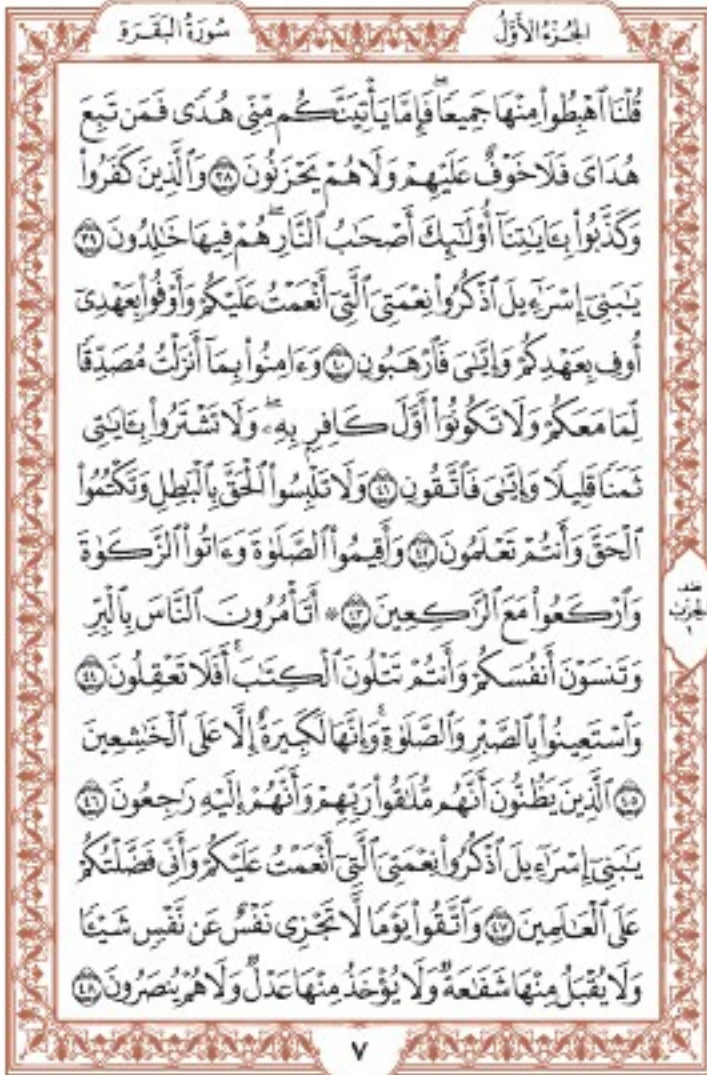 سُورَةُ البَقَرَةِ
الجُزْءُ الأَوَّلُ
قُلْنَا ٱهْبِطُواْ مِنْهَا جَمِيعًاۖ فَإِمَّا يَأْتِيَنَّكُم مِّنِّى هُدًى فَمَن تَبِعَ
هُدَاىَ فَلَا خَوْفٌ عَلَيْهِمْ وَلَا هُمْ يَحْزَنُونَ ٣٨ وَٱلَّذِينَ كَفَرُواْ
وَكَذَّبُواْ بِـَٔايَٰتِنَآ أُوْلَٰٓئِكَ أَصْحَٰبُ ٱلنَّارِۖ هُمْ فِيهَا خَٰلِدُونَ ٣٩
يَٰبَنِىٓ إِسْرَٰٓءِيلَ ٱذْكُرُواْ نِعْمَتِىَ ٱلَّتِىٓ أَنْعَمْتُ عَلَيْكُمْ وَأَوْفُواْ بِعَهْدِىٓ
أُوفِ بِعَهْدِكُمْ وَإِيَّٰىَ فَٱرْهَبُونِ ٤٠ وَءَامِنُواْ بِمَآ أَنزَلْتُ مُصَدِّقًا
لِّمَا مَعَكُمْ وَلَا تَكُونُوٓاْ أَوَّلَ كَافِرٍۭ بِهِۦۖ وَلَا تَشْتَرُواْ بِـَٔايَٰتِى
ثَمَنًا قَلِيلًا وَإِيَّٰىَ فَٱتَّقُونِ ٤١ وَلَا تَلْبِسُواْ ٱلْحَقَّ بِٱلْبَٰطِلِ وَتَكْتُمُواْ
ٱلْحَقَّ وَأَنتُمْ تَعْلَمُونَ ٤٢ وَأَقِيمُواْ ٱلصَّلَوٰةَ وَءَاتُواْ ٱلزَّكَوٰةَ
وَٱرْكَعُواْ مَعَ ٱلرَّٰكِعِينَ ٤٣ ۞ أَتَأْمُرُونَ ٱلنَّاسَ بِٱلْبِرِّ
نصف
الحزب
١
وَتَنسَوْنَ أَنفُسَكُمْ وَأَنتُمْ تَتْلُونَ ٱلْكِتَٰبَۚ أَفَلَا تَعْقِلُونَ ٤٤
وَٱسْتَعِينُواْ بِٱلصَّبْرِ وَٱلصَّلَوٰةِۚ وَإِنَّهَا لَكَبِيرَةٌ إِلَّا عَلَى ٱلْخَٰشِعِينَ
٤٥ ٱلَّذِينَ يَظُنُّونَ أَنَّهُم مُّلَٰقُواْ رَبِّهِمْ وَأَنَّهُمْ إِلَيْهِ رَٰجِعُونَ ٤٦
يَٰبَنِىٓ إِسْرَٰٓءِيلَ ٱذْكُرُواْ نِعْمَتِىَ ٱلَّتِىٓ أَنْعَمْتُ عَلَيْكُمْ وَأَنِّى فَضَّلْتُكُمْ
عَلَى ٱلْعَٰلَمِينَ ٤٧ وَٱتَّقُواْ يَوْمًا لَّا تَجْزِى نَفْسٌ عَن نَّفْسٍ شَيْـًٔا
وَلَا يُقْبَلُ مِنْهَا شَفَٰعَةٌ وَلَا يُؤْخَذُ مِنْهَا عَدْلٌ وَلَا هُمْ يُنصَرُونَ ٤٨
٧